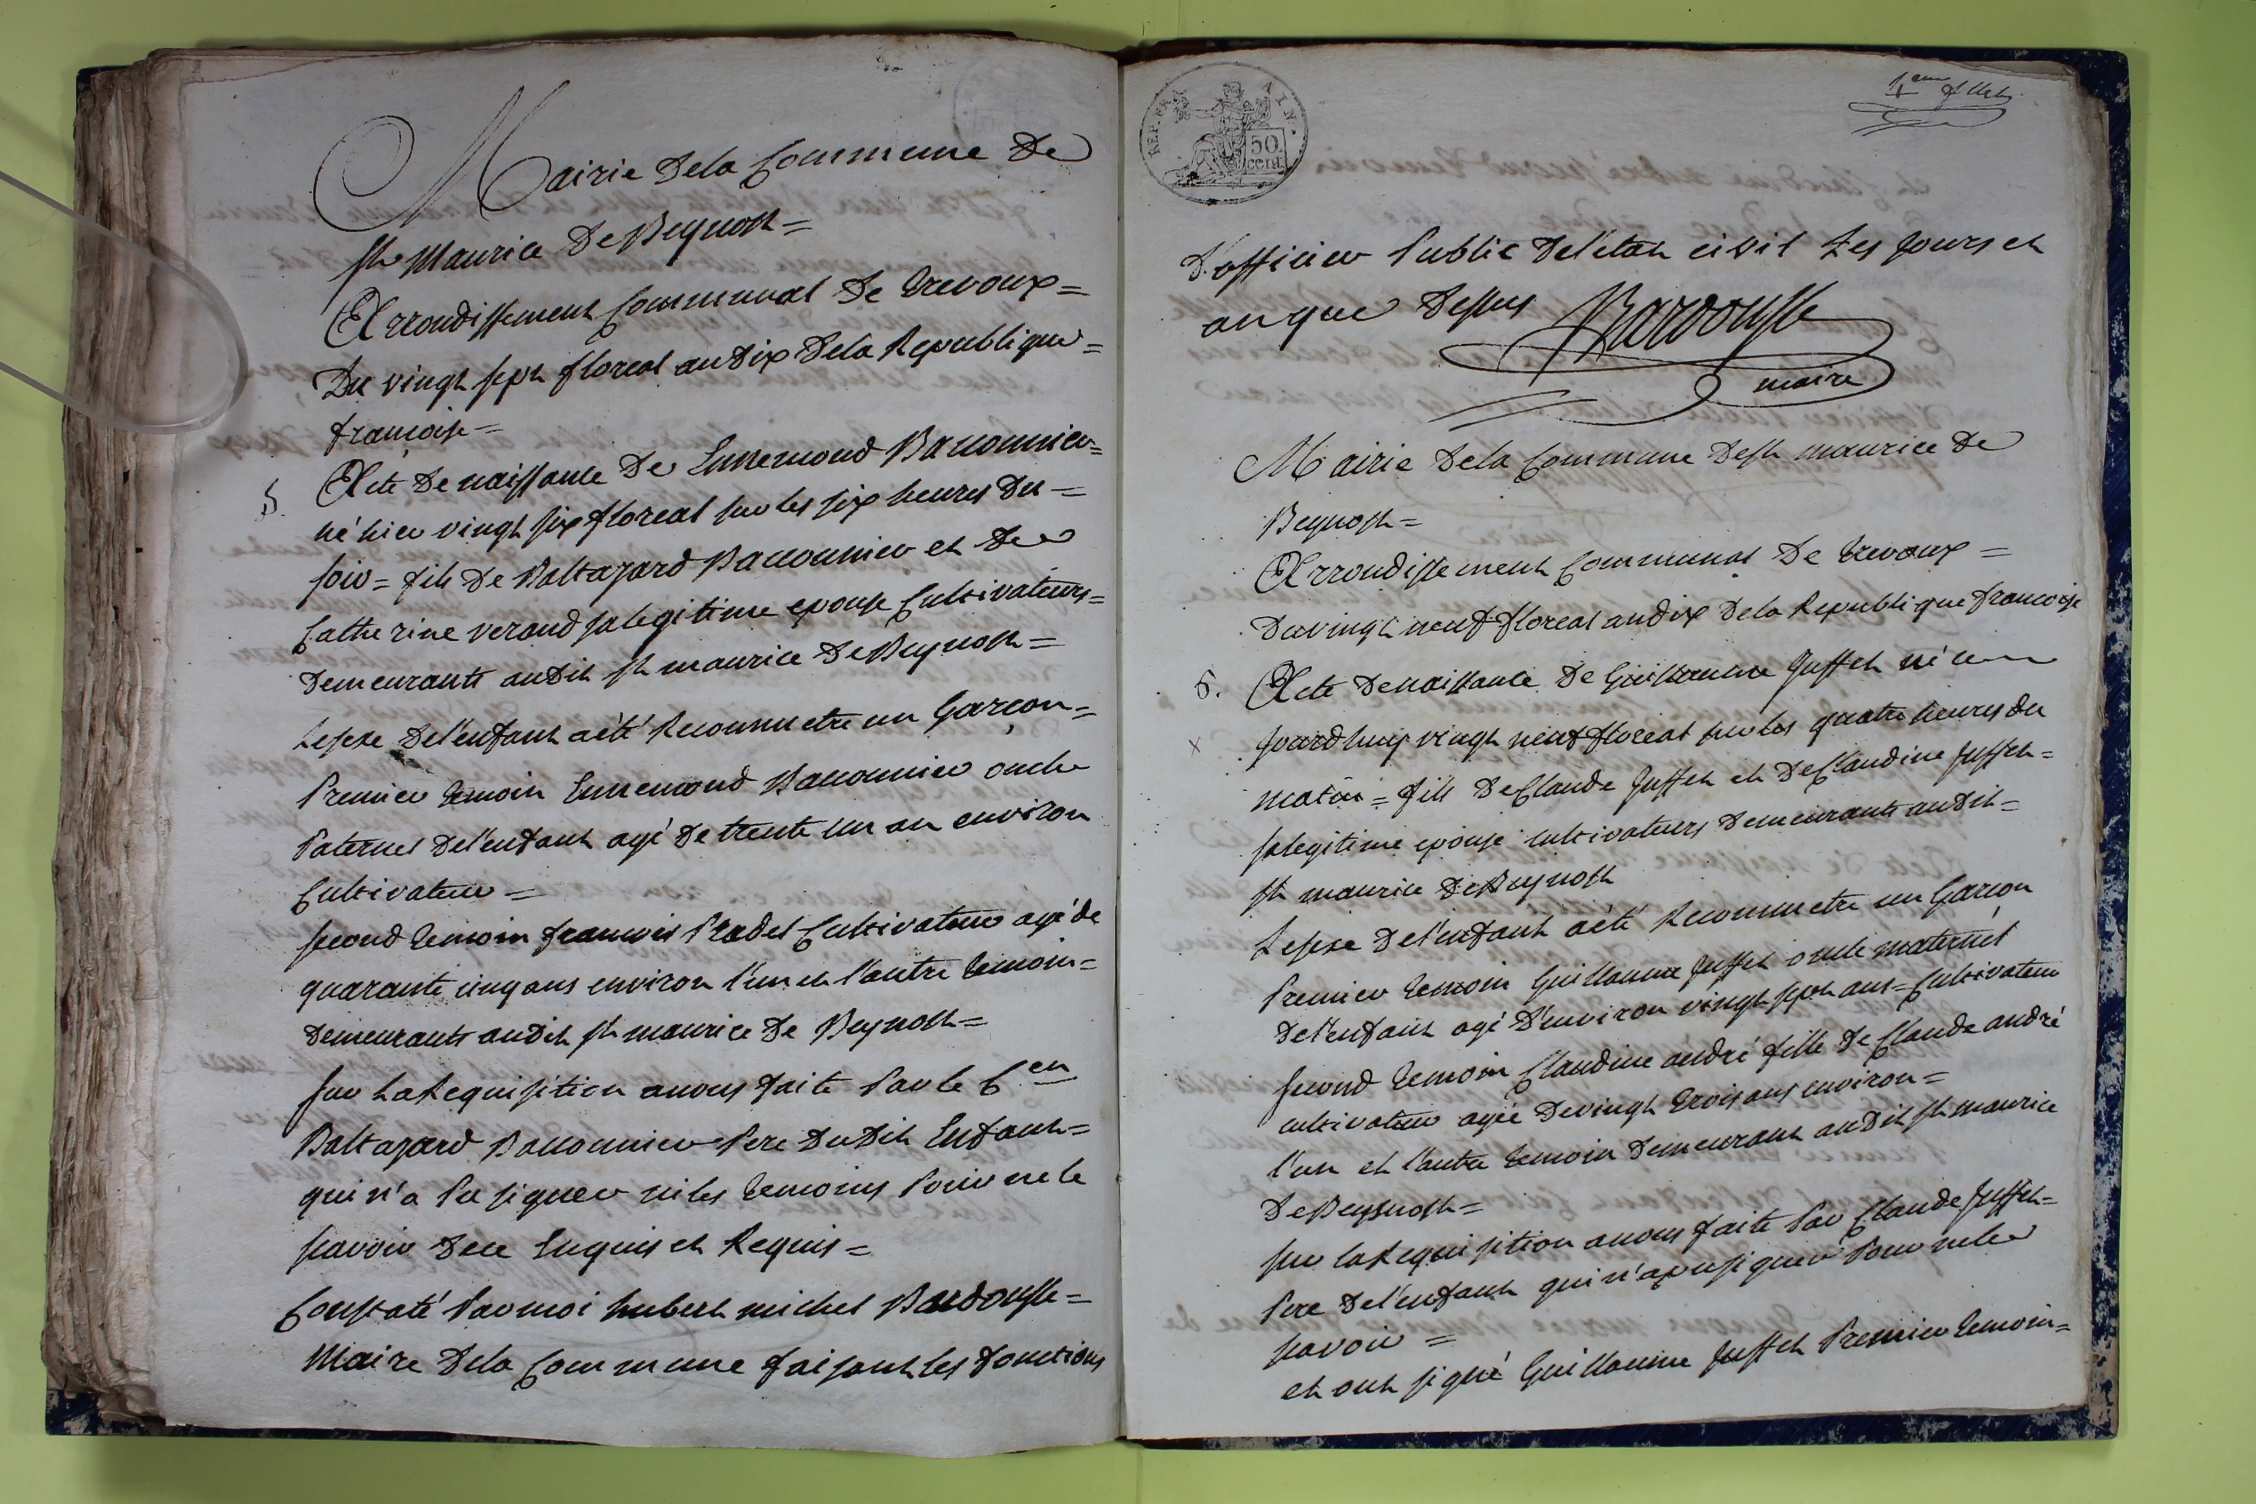 Mairie De la Commune De
St Maurice De Beynost =
Arrondissement Communal De Trevoux =
Du vingt sept floreal an Dix De la Republique =
françoise =
5. Acte De naissance De Ennemond Baconnier =
né hier vingt six floreal sur les six heures Du =
soir = fils De Baltazard Baconnier et De
Catherine verand sa legitime epouse Cultivateurs =
Demeurants au Dit St maurice De Beynost =
Le sexe De l'enfant a été Reconnu etre un Garçon =
Premier temoin Ennemond Baconnier oncle
Paternel De l'enfant agé De trente un an environ
Cultivateur =
second temoin francois Pradel Cultivateur agé de
quarante cinq ans environ l'un et l'autre temoin =
Demeurants au Dit St maurice De Beynost =
sur La Requisition a nous faite Par le Cen
Baltazard Baconnier Pere Du Dit Enfant =
qui n'a Pu signer ni les temoins Pour ne le
savoir De ce Enquis et Requis =
Constaté Par moi hubert michel Bardousse =
Maire De la Commune faisant les fonctions
REP. FRA AIN.
50
cent.
1er
D'officier Public De l'etat civil Les Jours et
an que Dessus Bardousse
maire
Mairie De la Commune De St maurice De
Beynost =
Arrondissement Communal De Trevoux =
Du vingt neuf floreal an Dix De la Republique francoise
6. Acte De naissance De Guillaume Juffet né ce
x jourd huy vingt neuf floreal sur les quatre heures du
matin = fils De Claude Juffet et De Claudine Juffet =
sa legitime epouse cultivateurs Demeurants au Dit =
St maurice De Beynost
Le sexe De l'enfant a été Reconnu etre un Garcon
Premier temoin Guillaume Juffet oncle maternel
De l'enfant agé D'environ vingt sept ans = Cultivateur
second temoin Claudine andré fille De Claude andré
cultivateur agée De vingt trois ans environ =
l'un et l'autre temoin Demeurant au Dit St maurice
De Beynost =
sur la Requisition a nous faite Par Claude Juffet =
Pere De l'enfant qui n'a pu signer Pour ne le
savoir =
et ont signé Guillaume Juffet Premier temoin =